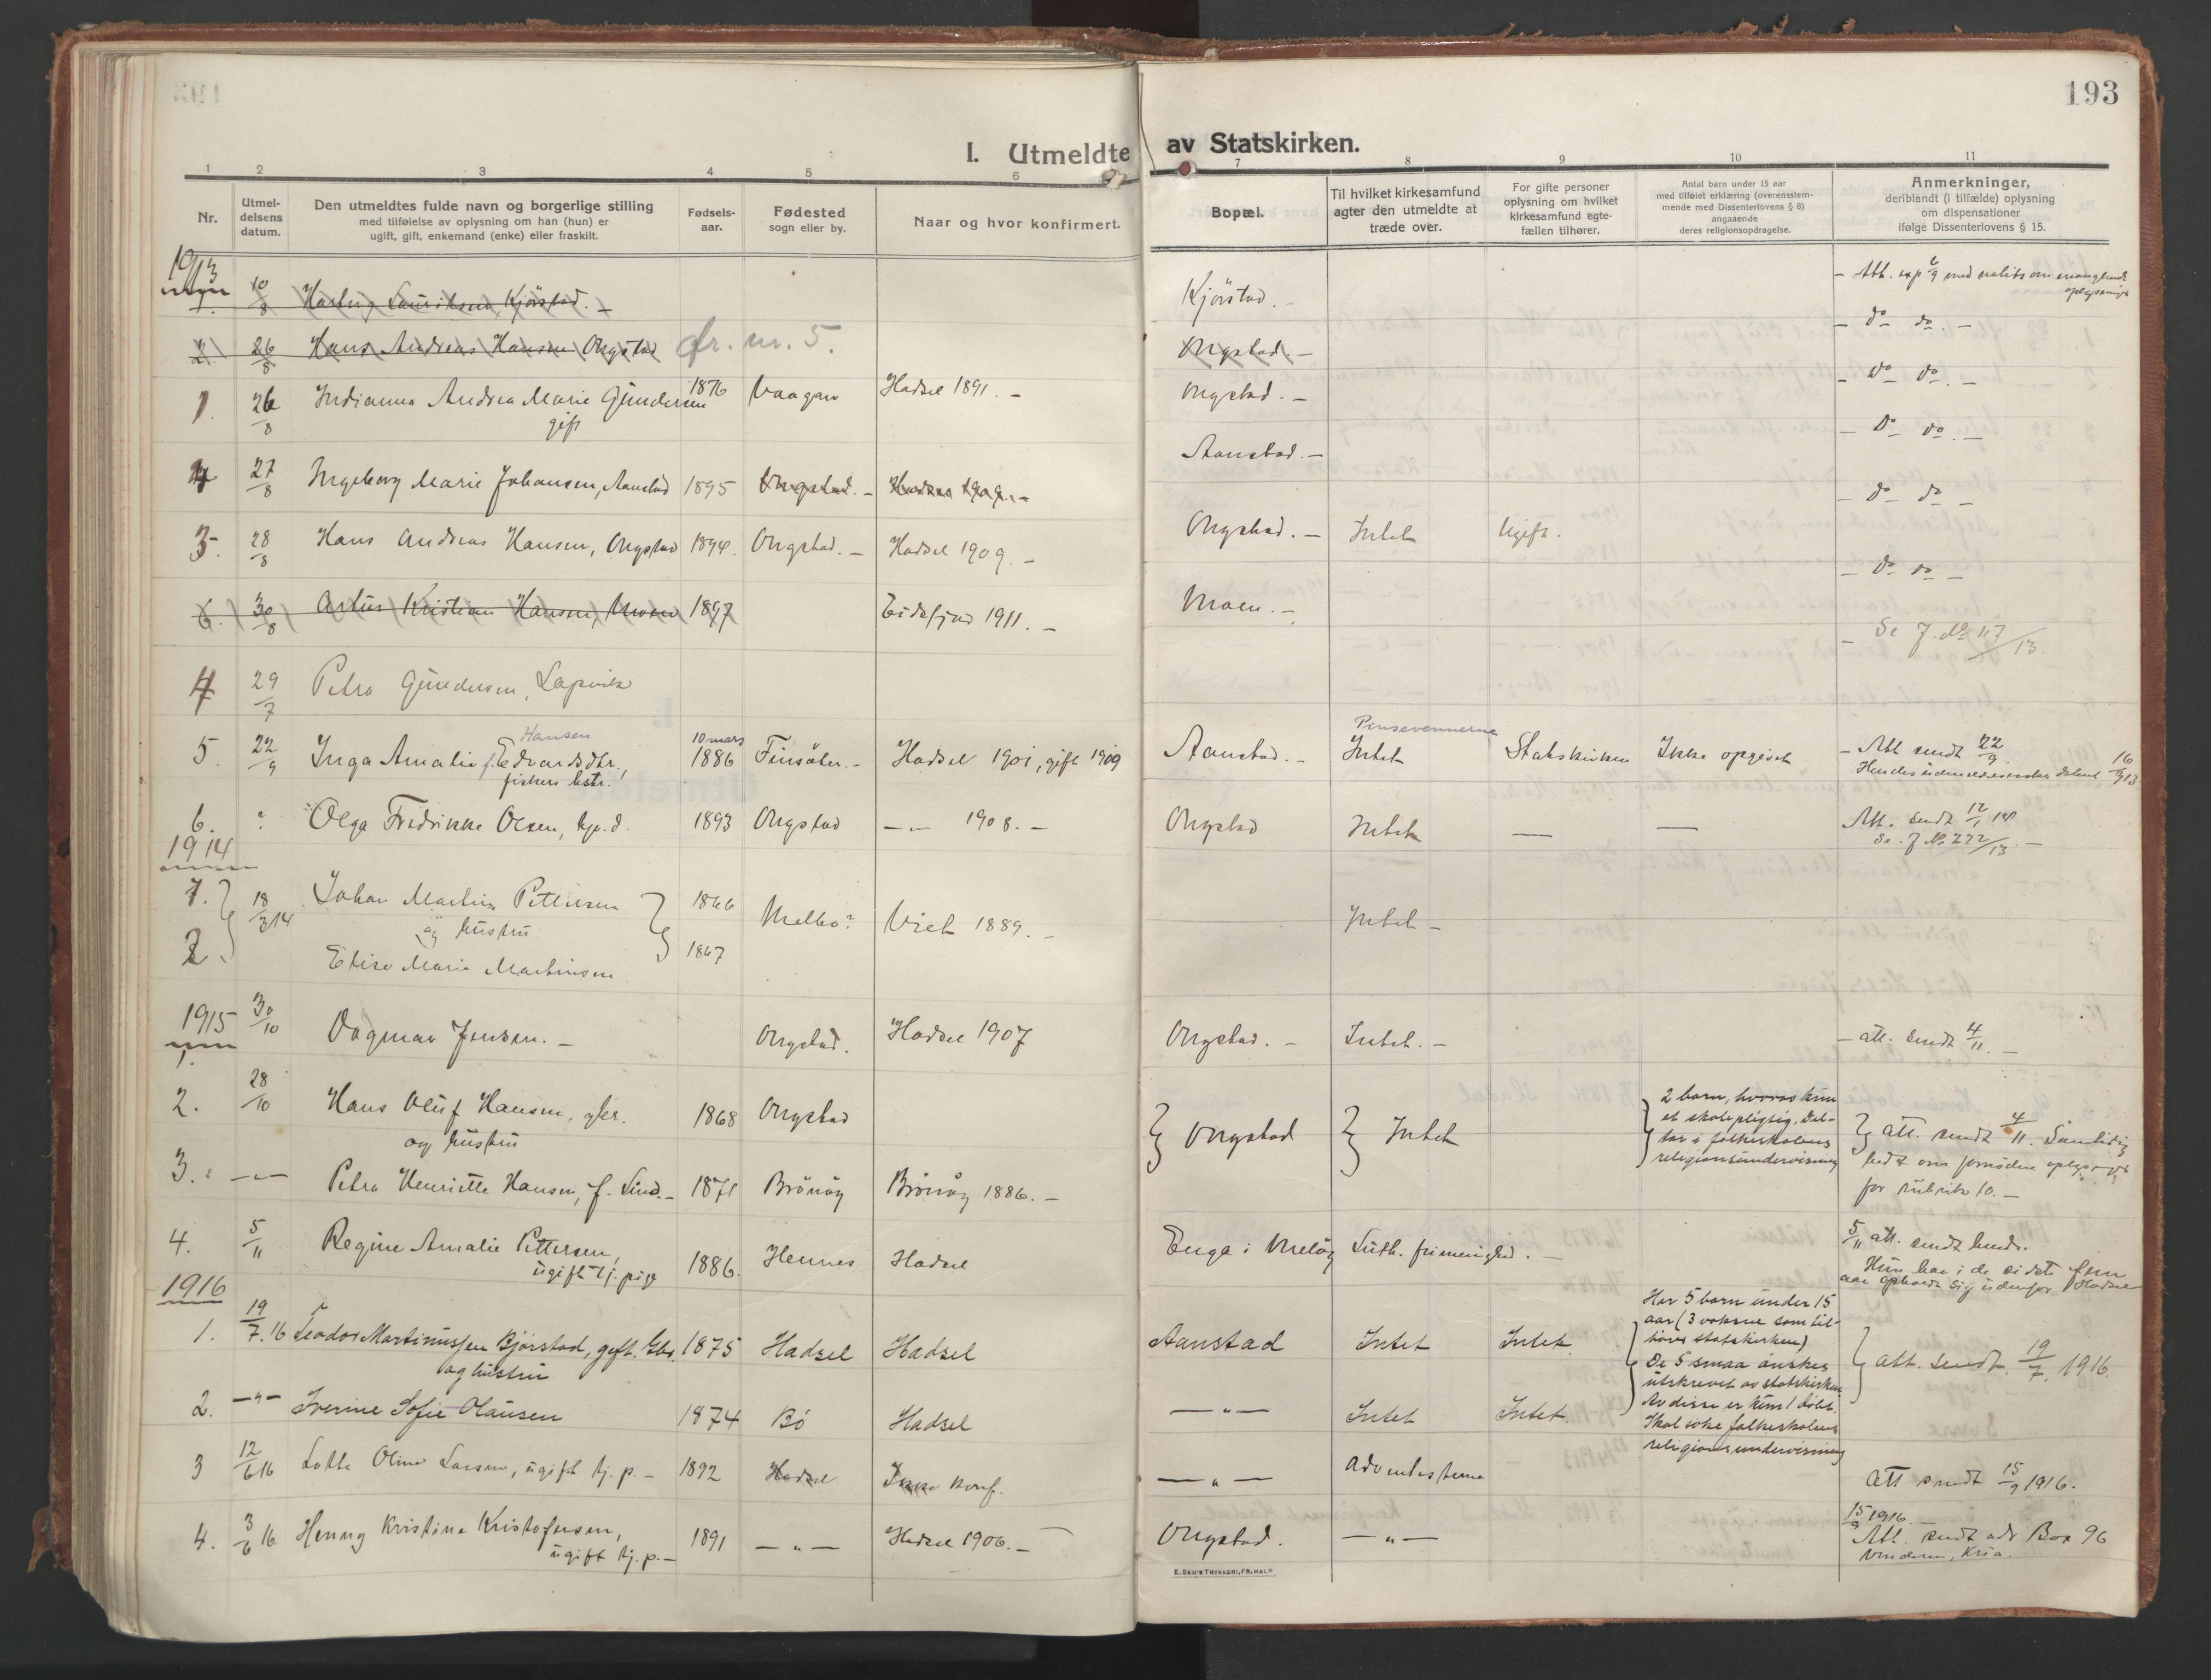 193
I. Utmeldte av Statskirken.
1 2 3 4 5 6 7 8 9 10 11
Nr.
Utmel-
delsens
datum.
Den utmeldtes fulde navn og borgerlige stilling
med tilføielse av oplysning om han (hun) er
ugift, gift, enkemand (enke) eller fraskilt.
Fødsels-
aar.
Fødested
sogn eller by.
Naar og hvor konfirmert.
Bopæl.
Til hvilket kirkesamfund
agter den utmeldte at
træde over.
For gifte personer
oplysning om hvilket
kirkesamfund egte-
fællen tilhører.
Antal barn under 15 aar
med tilføiet erklæring (overensstem-
mende med Dissenterlovens § 8)
angaaende
deres religionsopdragelse.
Anmerkninger,
deriblandt (i tilfælde) oplysning
om dispensationer
ifølge Dissenterlovens § 15.
1913
1. 10/8 Hartvig Lauritsen, Kjørstad. – Kjørstad. – Att. exp 6/9 med notits om manglende
oplysninger
2. 26/8 Hans Andreas Hansen Ongstad cfr. nr. 5. Ongstad. – – do do. –
1. 26/8 Indianna Andrea Marie Gundersen 1876 Vaagan Hadsel 1891. – Ongstad. – – do do. –
gift
4 27/8 Ingeborg Marie Johansen, Aanstad 1895 Ongstad. – Hadsel 1909. – Aanstad. – – do do. –
3. 28/8 Hans Andreas Hansen, Ongstad 1894. Ongstad. – Hadsel 1909. – Ongstad. – Intet Ugift. – do do –
6. 30/8 Artur Kristian Hansen, Moen 1897 Eidsfjord 1911. – Moen. – – do do –
4 29/7 Petra Gundersen, Lapvik – Se J. No 117/13.
Hansen 10 mars Pinsevennerne
5. 22/9 Inga Amalie Edvardsdtr., 1886 Finsæter. – Hadsel 1901, gift 1909 Aanstad. – Intet Statskirken Ikke opgivet – Att sendt 22/9.
fiskers hstr. 16/9 13
6. ? Olga Fredrikke Olsen, tje. d. 1893 Ongstad –„– 1908. – Ongstad Intet — — Att. sendt 12/1 14
Se J No 222/13. –
1914
1. 18/3 14 Johan Martin Pettersen 1866 Melbo? Viet 1889. – Intet –
og hustru
2. Elise Marie Martinsen 1867
1915
1. 30/10 Dagmar Jensen. – Ongstad. Hadsel 1907 Ongstad. – Intet. – – att. sendt 4/11. –
2. 28/10 Hans Oluf Hansen, gbr. 1868 Ongstad Ongstad Intet
og hustru
2 barn, hvorav kun
et skolepligtig. Del-
tar i folkeskolens
religionsundervisning
att. sendt 4/11. Samtidig
bedt om fornødne oplysninger
for rubrik 10. –
3. –„– Petra Henriette Hansen, f. Lind. – 1871 Brönöy Brönöy 1886. –
4. 5/11 Regine Amalie Pettersen, 1886. Hennes Hadsel Enga i Meløy Luth. frimenighed. – 5/11 att. sendt hende.
ugift tj. pige
Hun har i de sidste fem
aar opholdt sig utenfor Hadsel
1916
1. 19/7.16 Teodor Martinussen Kjørstad, gift. Gbr. 1875 Hadsel Hadsel Aanstad Intet Intet
og hustru
Har 5 barn under 15
aar (3 voksne som til-
hører statskirken)
De 5 smaa ønskes
utskrevet av statskirken
Av disse er kun 1 døbt.
Skal søke folkeskolens
religionsundervisning
att. sendt 19/7 1916.
2. –„– Iverine Sofie Olausen 1874 Bö Hadsel –„– Intet Intet
3 12/6 16 Lotte Oline Larsen, ugift tj. p. – 1892 Hadsel Ikke konf. –„– Adventisterne Att sendt 15/9 1916.
4. 3/6 16 Henny Kristine Kristofersen, 1891 –„– Hadsel 1906. – Ongstad. –„– 15/9 1916. –
ugift tj. p. –
Att. sendt adr Box 96
Vinderen, Kria.
E. SEM'S TRYKKERI, FR.HALD